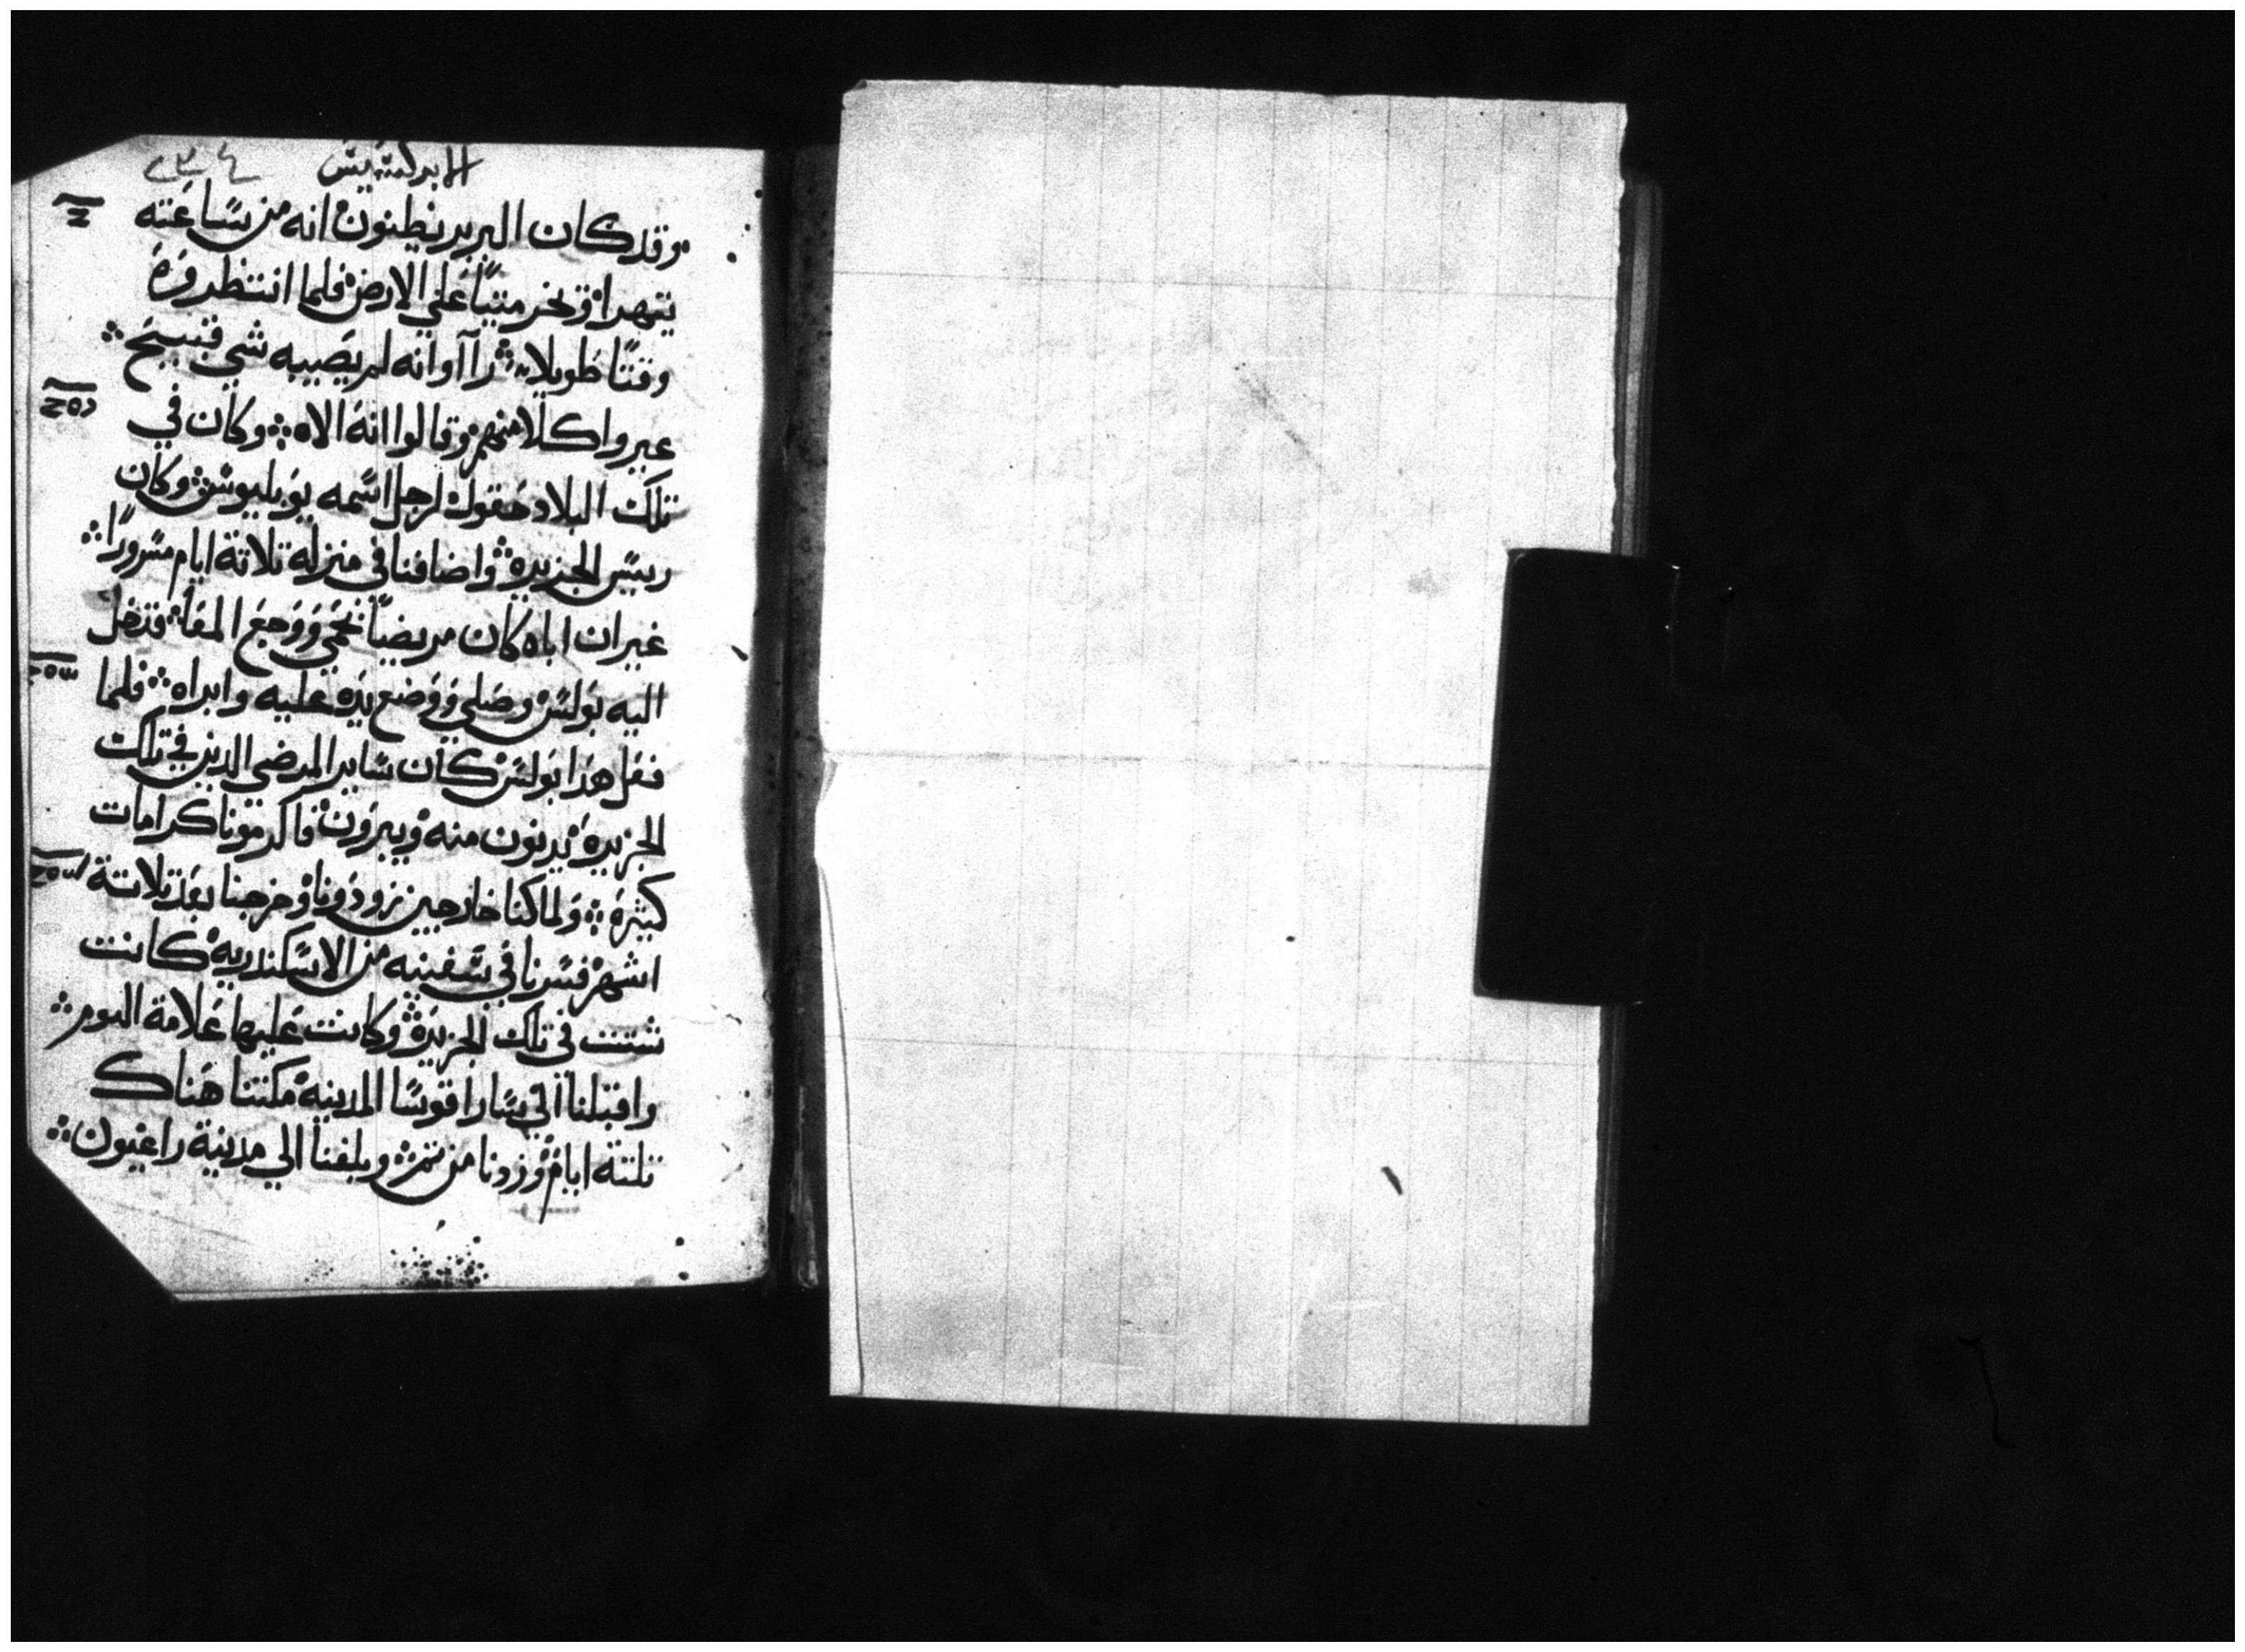 الابركسيس
وقد كان البربر يظنون انه من ساعته
يتهدا وتخر ميتاً علي الارض فلما انتظروه
وقتاً طويلا راآوانه لم يصيبه شي قبيح
عيروا كلامهم وقالوا انه الاه وكان في
تلك البلاد حقول لرجل اسمه بوبليوس وكان
رييس الجزيره واضافنا في منزله تلاتة ايام مسروراً
غير ان اباه كان مريضاً بحمي ووجع المعاء فدخل
اليه بولس وصلي ووضع يده عليه وابراه فلما
فعل هدا بولس كان ساير المرضي الدين في تلك
الجزيره يدنون منه ويبرون فاكرمونا كرامات
كثيره ولما كنا خارجين زودونا وخرجنا بعد تلاتة
اشهر فسرنا في سفينه من الاسكندريه كانت
شتت في تلك الجزيره وكانت عليها علامة التوم
واقبلنا الي ساراقوسا المدينه مكتنا هناك
تلتة ايام وزدنا من تم وبلغنا الي مدينة راغيون